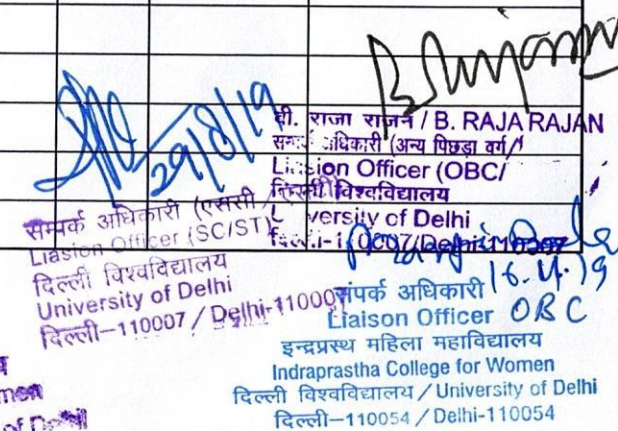 29/8/19
बी. राजा राजन / B. RAJA RAJAN
सम्पर्क अधिकारी (अन्य पिछड़ा वर्ग/
Liasion Officer (OBC/
दिल्ली विश्वविद्यालय
University of Delhi
दिल्ली-110007/Delhi-110007
सम्पर्क अधिकारी (एससी /
Liasion Officer (SC/ST)
दिल्ली विश्वविद्यालय
University of Delhi
दिल्ली-110007 / Delhi-110007
16.4.19
संपर्क अधिकारी
Liaison Officer OBC
इन्द्रप्रस्थ महिला महाविद्यालय
Indraprastha College for Women
दिल्ली विश्वविद्यालय / University of Delhi
दिल्ली-110054 / Delhi-110054
of Delhi